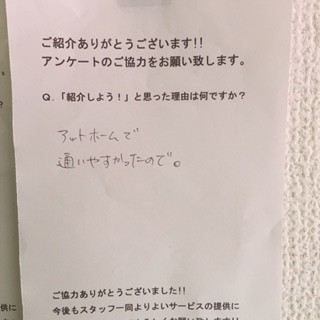 ご紹介ありがとうございます!!
アンケートのご協力をお願い致します。
Q.「紹介しよう！」と思った理由は何ですか？
アットホームで
通いやすかったので。
ご協力ありがとうございました!!
今後もスタッフ一同よりよいサービスの提供に